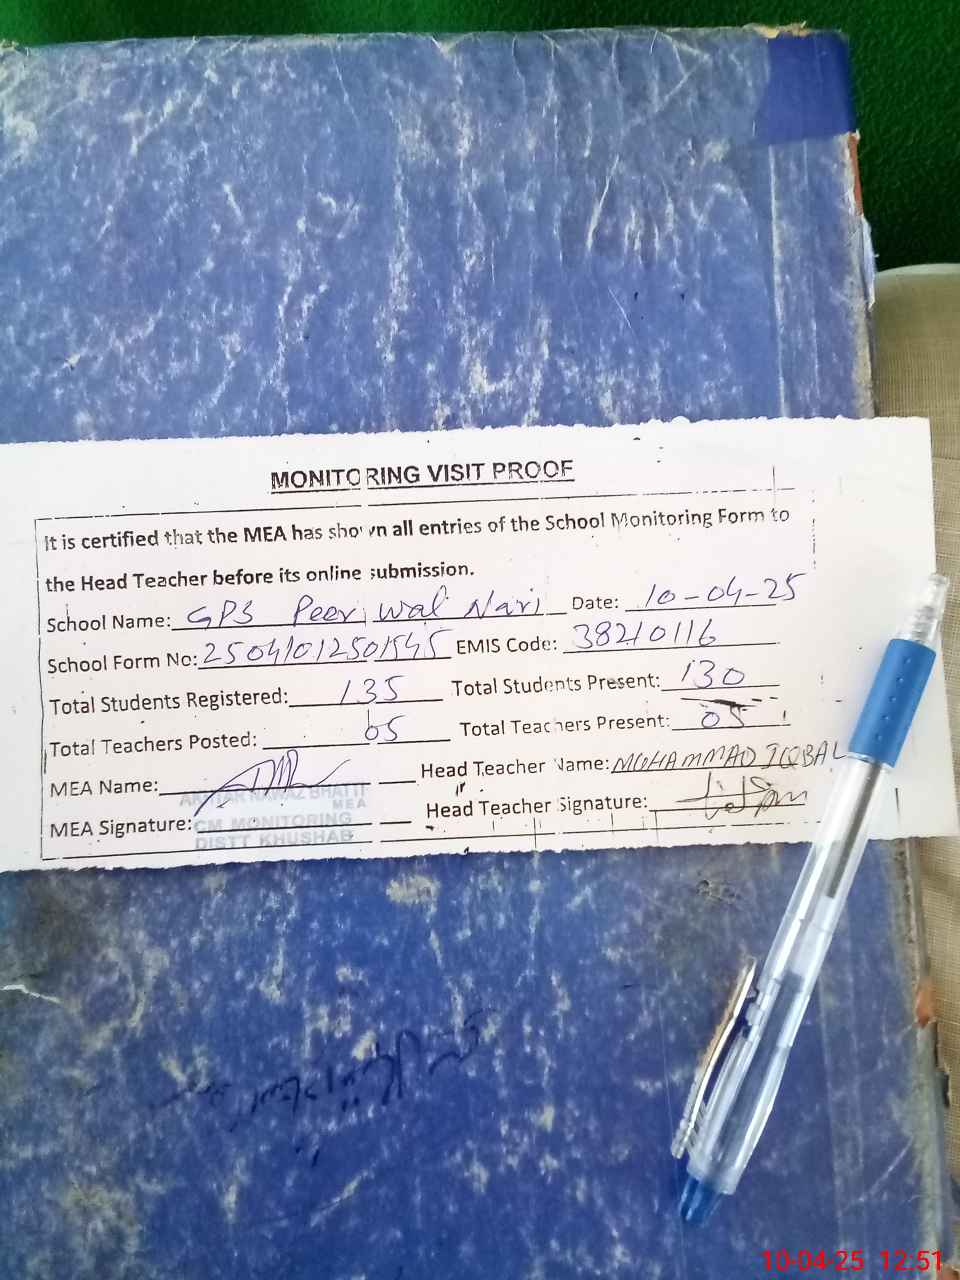 MONITORING VISIT PROOF
It is certified that the MEA has shown all entries of the School Monitoring Form to
the Head Teacher before its online submission.
School Name: GPS Peer Wal Nari Date: 10-04-25
School Form No: 25041012501545 EMIS Code: 38210116
Total Students Registered: 135 Total Students Present: 130
Total Teachers Posted: 05 Total Teachers Present: 05
MEA Name: Head Teacher Name: MOHAMMAD IQBAL
AKHTAR NAWAZ BHATTI
MEA
MEA Signature: Head Teacher Signature:
CM MONITORING
DISTT KHUSHAB
10-04-25 12:51